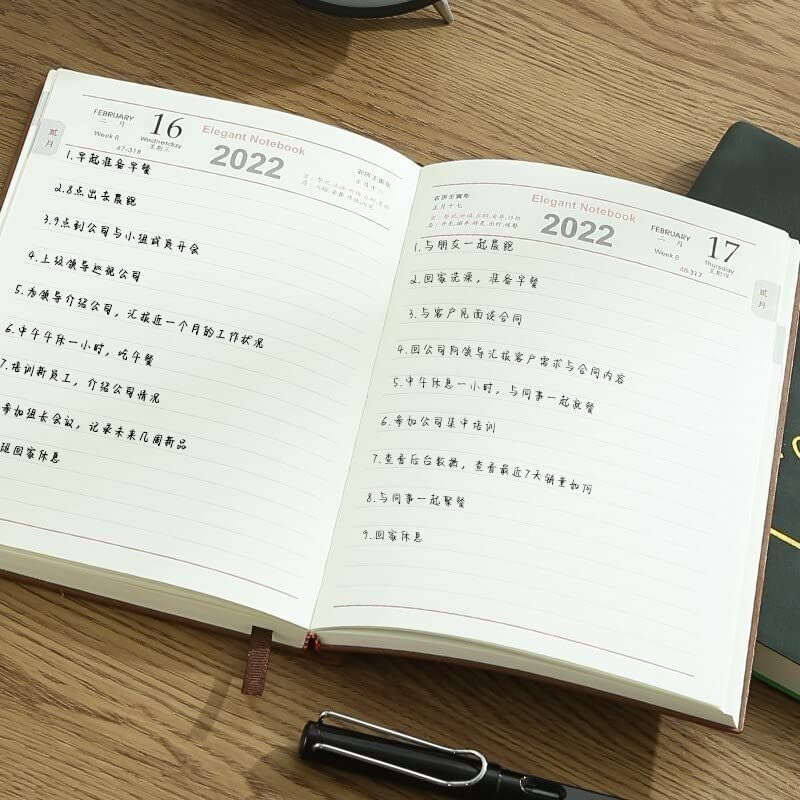 FEBRUARY
二 月
16
Wednesday
星期三
Week 8
47-318
Elegant Notebook
2022
农历壬寅年
正月十六
贰
月
1.早起准备早餐
2.8点出去晨跑
3.9点到公司与小组成员开会
4.上级领导巡视公司
5.为领导介绍公司，汇报近一个月的工作状况
6.中午午休一小时，吃午餐
7.培训新员工，介绍公司情况
参加组长会议，记录未来几周新品
班回家休息
农历壬寅年
正月十七
Elegant Notebook
2022
FEBRUARY
二 月
17
Thursday
星期四
Week 8
48-317
贰
月
1.与朋友一起晨跑
2.回家洗澡，准备早餐
3.与客户见面谈合同
4.回公司向领导汇报客户需求与合同内容
5.中午休息一小时，与同事一起就餐
6.参加公司集中培训
7.查看后台数据，查看最近7天销量如何
8.与同事一起聚餐
9.回家休息